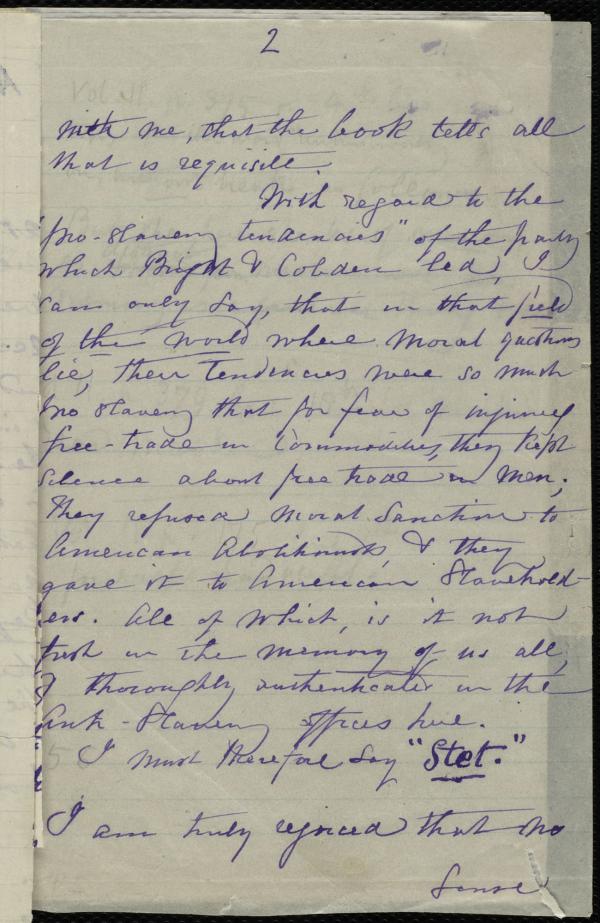 2
with me, that the book tells all
that is requisite.
With regard to the
"pro-slavery tendencies" of the party
which Bright & Cobden led, I
can only say, that in that field
of the world where moral questions
lie, their tendencies were so much
pro slavery that for fear of injuring
free-trade in Commodities, they kept
silence about free trade in men;
they refused moral sanction to
American Abolitionists, & they
gave it to American Slavehold-
ers. All of which, is it not
fresh in the memory of us all,
& thoroughly authenticated in the
Anti-Slavery offices here.
I must therefore say "Stet."
I am truly rejoiced that no
sense